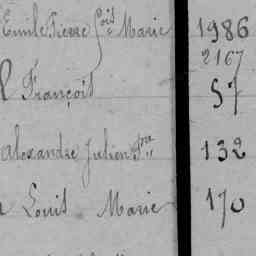 Emile Pierre Fois Marie 1986
2167
François 57
Alexandre Julien Fre 132
Louis Marie 170